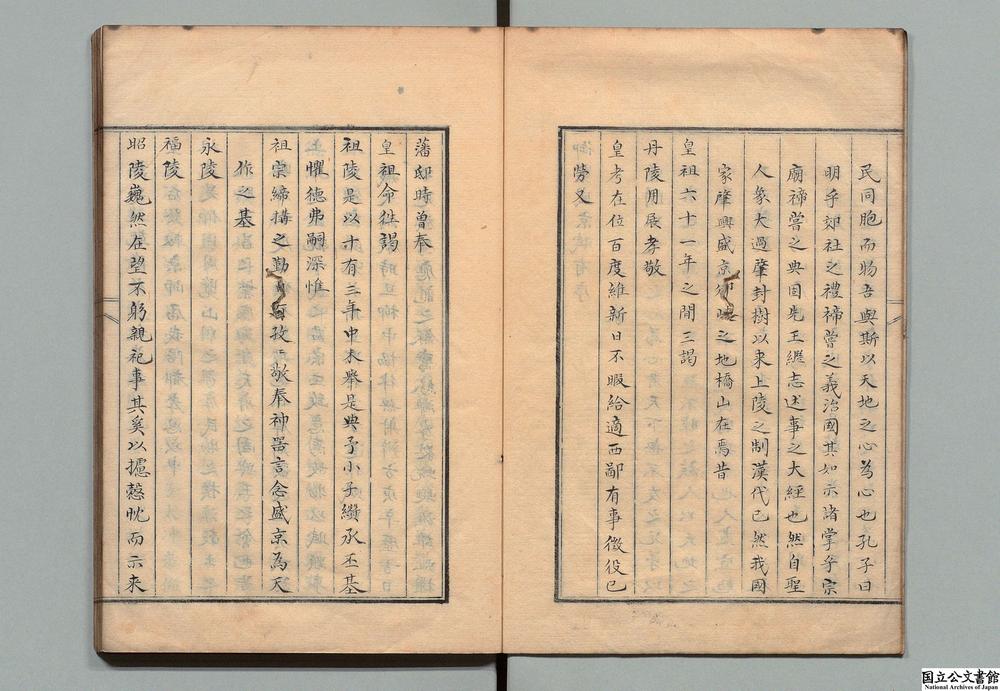 民同胞而物吾與斯以天地之心為心也孔子曰
明乎郊社之禮禘嘗之義治國其如示諸掌乎宗
廟禘嘗之典固先王繼志述事之大經也然自聖
人象大過肇封樹以來上陵之制漢代已然我國
家肇興盛京之地橋山在焉昔
皇祖六十一年之間三謁
丹陵用展孝敬
皇考在位百度維新日不暇給適西鄙有事徵役已
勞又
藩邸時曾奉
皇祖命往謁
祖陵是以十有三年中未舉是典予小子纘承丕基
懼德弗嗣深惟
祖宗締搆之勤敬奉神器言念盛京為天
作之基
永陵
福陵
昭陵巍然在望不躬親祀事其奚以攄慤忱而示來
国立公文書館
National Archives of Japan